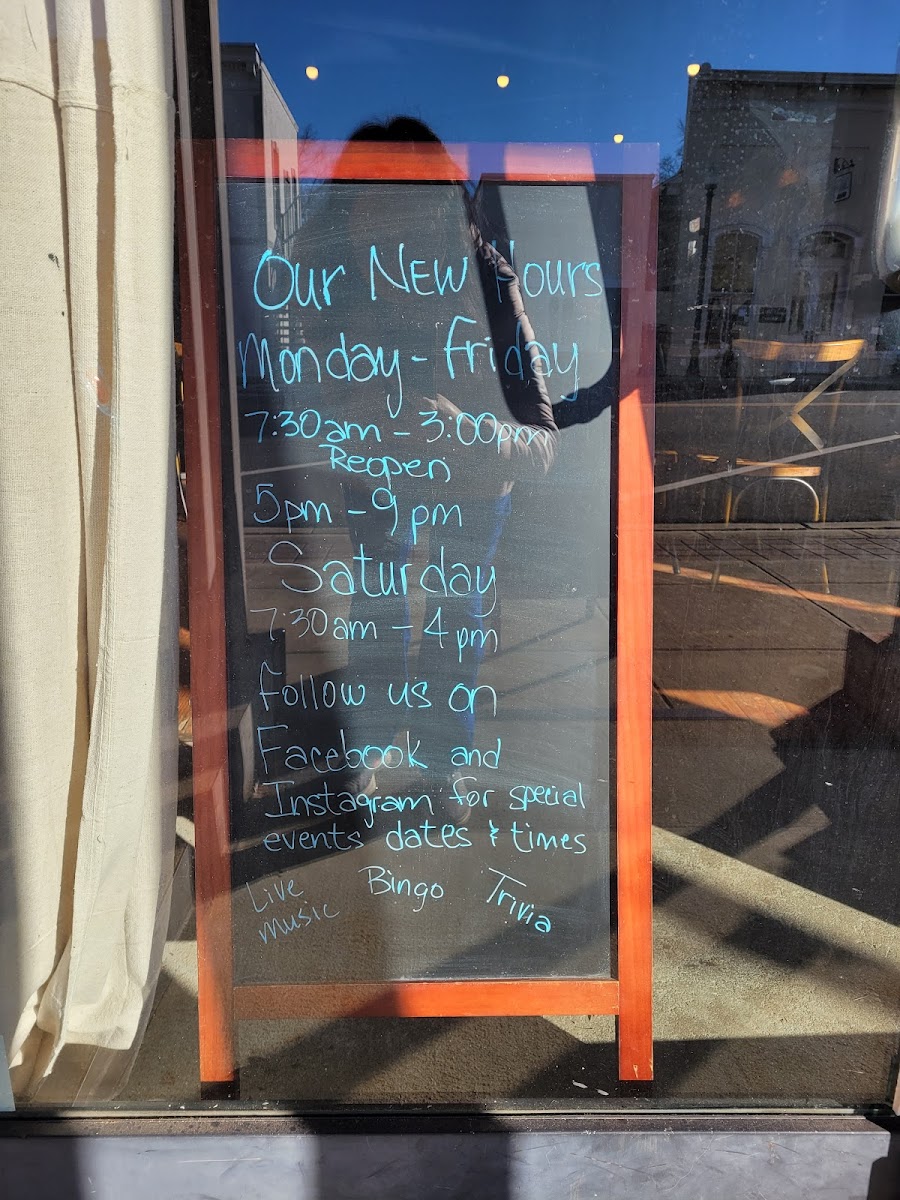 Our New Hours
Monday - Friday
7:30am - 3:00pm
Reopen
5pm - 9pm
Saturday
7:30am - 4pm
Follow us on
Facebook and
Instagram for special
events dates & times
Live Bingo Trivia
music